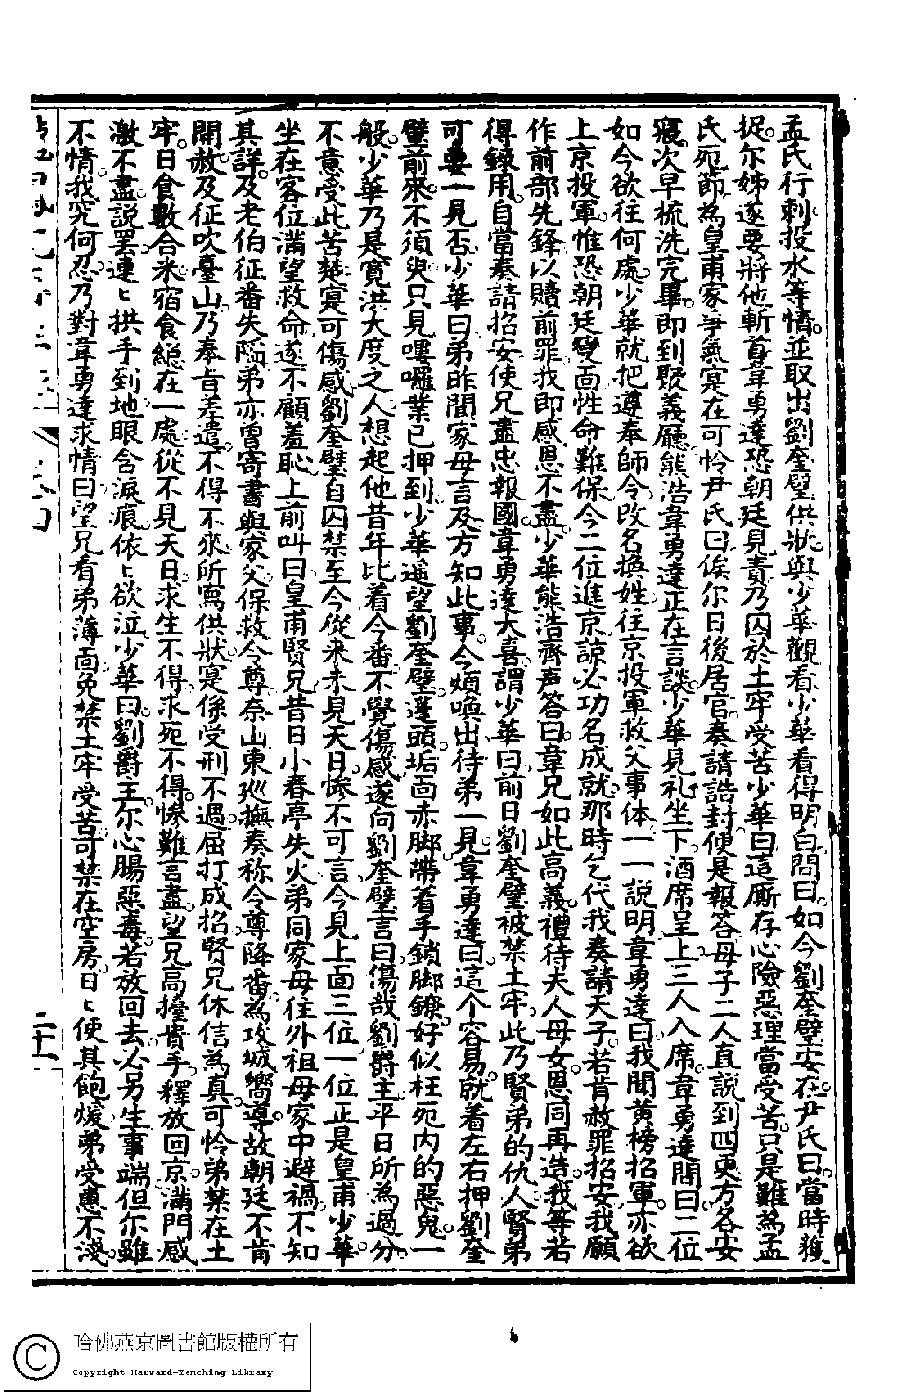 孟氏行刺投水等情並取出劉奎璧供狀與少華觀看少華看得明白問曰如今劉奎璧安在尹氏曰當時獲
捉尔姊遂要將他斬首韋勇達恐朝廷見責乃囚於土牢受苦少華曰這厮存心險惡理當受苦只是難為孟
氏死節為皇甫家爭氣寔在可怜尹氏曰俟尔日後居官奏請誥封便是報答母子二人直說到四更方各安
寢次早梳洗完畢即到聚義廳熊浩韋勇達正在言談少華見礼坐下酒席呈上三人入席韋勇達問曰二位
如今欲往何處少華就把遵奉師令改名換姓往京投軍救父事体一一說明韋勇達曰我聞黃榜招軍亦欲
上京投軍惟恐朝廷變面性命難保今二位進京諒必功名成就那時乞代我奏請天子若肯赦罪招安我願
作前部先鋒以贖前罪我即感恩不盡少華熊浩齊声答曰韋兄如此高義禮待夫人母女恩同再造我等若
得錄用自當奏請招安使兄盡忠報國韋勇達大喜謂少華曰前日劉奎璧被禁土牢此乃賢弟的仇人賢弟
可要一見否少華曰弟昨聞家母言及方知此事今煩喚出待弟一見韋勇達曰這个容易就着左右押劉奎
璧前來不須臾只見嘍囉業已押到少華遥望劉奎璧蓬頭垢面赤脚帶着手鎖脚鐐好似枉死内的惡鬼一
般少華乃是寬洪大度之人想起他昔年比着今番不覺傷感遂向劉奎璧言曰傷哉劉爵主平日所為過分
不意受此苦楚寔可傷感劉奎璧自囚禁至今從來未見天日惨不可言今見上面三位一位正是皇甫少華
坐在客位滿望救命遂不顧羞恥上前叫曰皇甫賢兄昔日小春亭失火弟同家母往外祖母家中避禍不知
其詳及老伯征番失陥弟亦曾寄書與家父保救令尊奈山東巡撫奏称令尊降番為攻城嚮導故朝廷不肯
開赦及征吹臺山乃奉旨差遣不得不來所寫供狀寔係受刑不過屈打成招賢兄休信為真可怜弟禁在土
牢日食數合米宿食總在一處從不見天日求生不得求死不得惨難言盡望兄高擡貴手釋放回京滿門感
激不盡說罷連〻拱手到地眼含淚痕依〻欲泣少華曰劉爵王尔心腸惡毒若放回去必另生事端但尔雖
不情我究何忍乃對韋勇達求情曰望兄看弟薄面免禁土牢受苦可禁在空房日〻使其飽煖弟受惠不淺
哈佛燕京圖書館版權所有
Copyright Harvard-Yenching Library